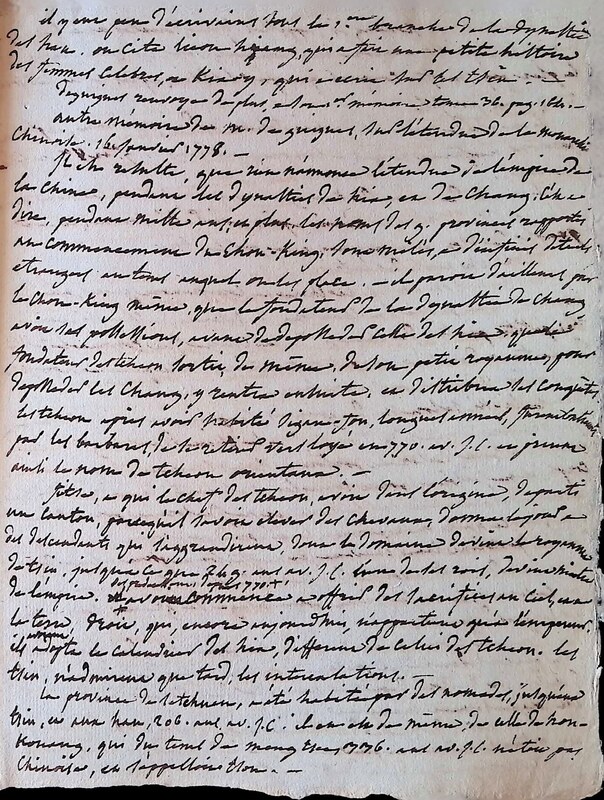 il y eut peu d'écrivains sous la 1.ere branche de la dynastie
des han. on cite lieou hiang, qui a fait une petite histoire
des femmes célèbres, a qui a écrit sur les
Deguignes renvoye de plus, a son mémoire tome 36. pag. 164. –
autre mémoire de m. de guignes, sur l'étendue de la monarchie
Chinoise. 16. janvier 1778. –
il en résulte, que rien n'annonce l'étendue de l'empire de
la Chine, pendant les dynasties de hia, et de Chang, c'est a
dire, pendant mille ans, et plus. les noms des 9. provinces rapportés
au commencement du Chou-King, sont mêlés, a d'autres détails
étrangers au tems auquel on les place. – il paroit d'ailleurs par
le Chou-King même, que le fondateur de la dynastie de Chang
avoit ses possessions, avant de déposséder celle des hia que le
fondateur des tcheou sortit, de même, de son petit royaume, pour
déposséder les Chang, y rentra ensuite, et distribua ses conquêtes.
les tcheou après avoir habité longues années, furent
par les barbares, se retirer vers loye en 770. av. J.C. et prirent
ainsi le nom de tcheou orientaux. –
fitse, a qui le chef des tcheou, avoit dans l'origine, départi
un canton, parcequ'il savoit élever des chevaux, donna le jour a
des descendants qui s'aggrandirent, dont le domaine devint le royaume
de tsin, jusqu'a ce que 249. ans av. J.C. l'un de ses rois, devint maître
de l'empire. 770 avoit commencé a offrir des sacrifices au Ciel, a
la terre, droit, qui, encore aujourd'hui, n'appartient qu'a l'empereur.
ils adopté le calendrier des hia, différent de celui des tcheou. les
tsin, n'admirent que tard, les intercalations. –
la province de setchuen, a été habitée par des nomades, jusqu'aux
tsin, et aux han, 206. ans, av. J.C. il en est de même, de celle de hou-
Kouang, qui du tems de ans av. J.C. n'étoit pas
Chinoise, et s'appelloit tsou. –